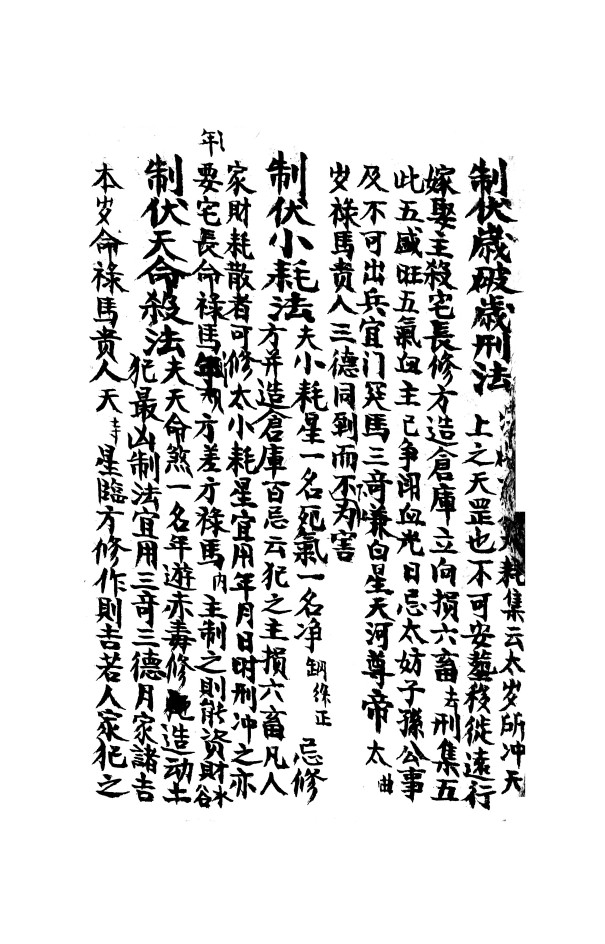 制伏歳破歳刑法 耗集云太岁所冲天
上之天罡也不可安塟移徙遠行
嫁娶主殺宅長修方造倉庫立向損六畜 刑集五
此五盛旺五氣血主已争闹血光日忌太妨子孫公事
及不可出兵宜门 馬三竒 白星天河尊帝太
岁禄馬贵人三德同到而不为害
制伏小耗法夫小耗星一名死氣一名净 忌修
方并造倉庫百忌云犯之主損六畜凡人
家財耗散者可修太小耗星宜用年月日时刑冲之亦
要宅長命禄馬 方差方禄馬内主制之則能资財
年
制伏天命殺法夫天命煞一名年遊亦毒修 造动土
犯最凶制法宜用三竒三德月家諸吉
本岁命禄馬贵人天 星臨方修作則吉若人家犯之